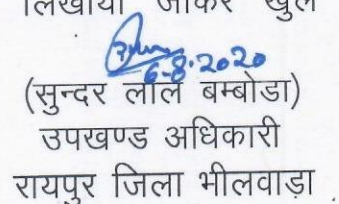 लिखाया जाकर खुले
6-8-2020
(सुन्दर लाल बम्बोडा)
उपखण्ड अधिकारी
रायपुर जिला भीलवाड़ा